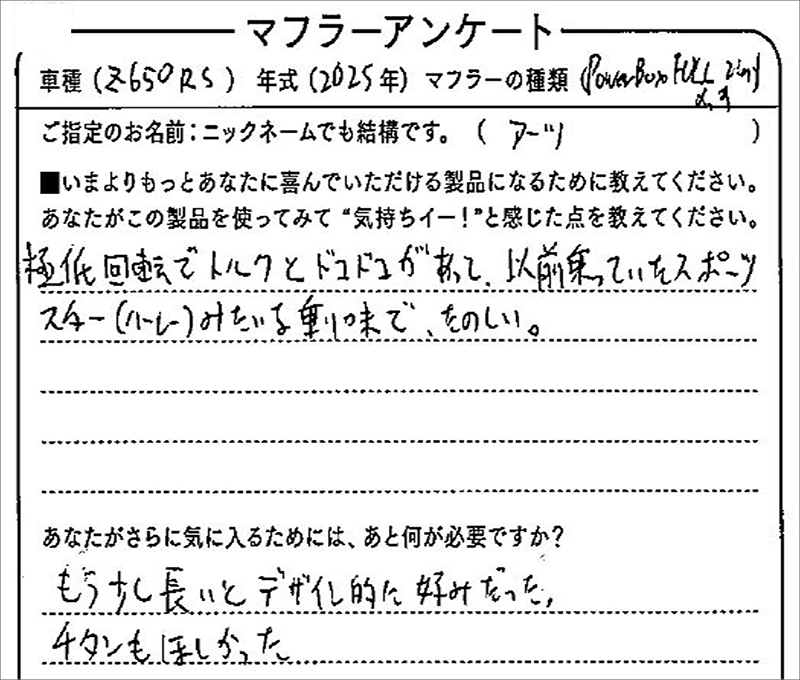 マフラーアンケート
車種(Z650RS) 年式(2025年) マフラーの種類(PowerBox FULL
ご指定のお名前:ニックネームでも結構です。( アーツ )
■いまよりもっとあなたに喜んでいただける製品になるために教えてください。
あなたがこの製品を使ってみて“気持ちイー!”と感じた点を教えてください。
極低回転でトルクとドコドコがあって、以前乗っていたスポーツ
スター(ハーレー)みたいな乗り味で、たのしい。
あなたがさらに気に入るためには、あと何が必要ですか?
もう少し長いとデザイン的に好みだった,
チタンもほしかった